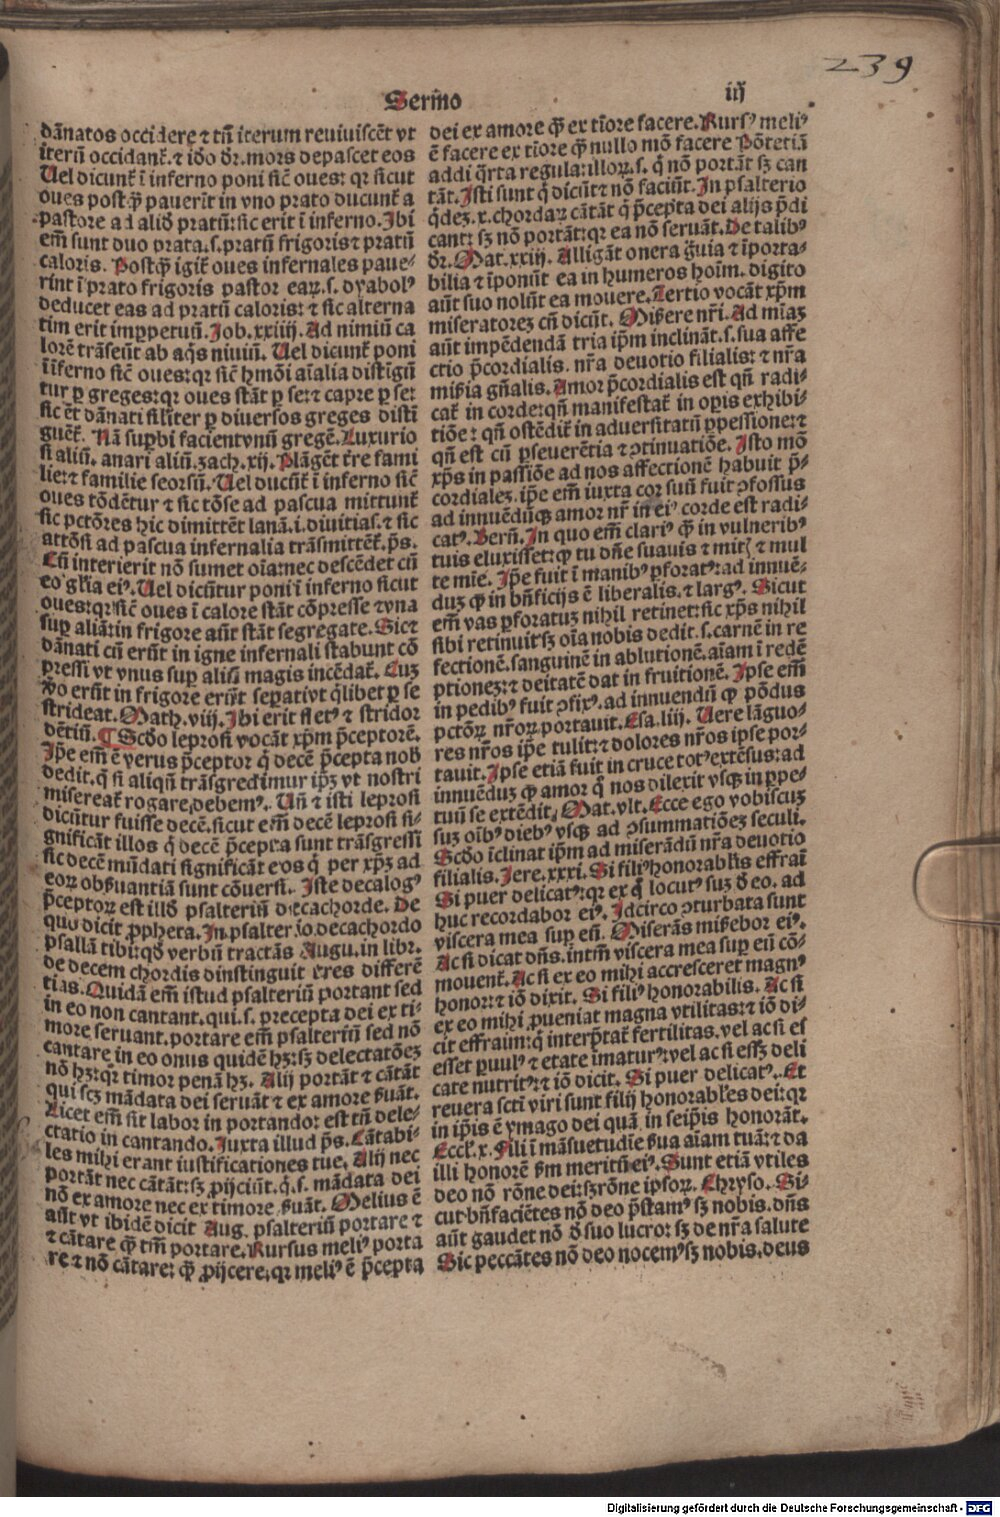 239
Sermo iij
dānatos occidere ⁊ tn̄ iterum reuiuiscēt vt
iterū occidant̄. ⁊ iō dr̄. mors depascet eos
Uel dicunt̄ ī inferno poni sic̄ oues: qr sicut
oues postꝙ̄ pauerīt in vno prato ducunt̄ a
pastore ad aliō pratū: sic erit ī inferno. Ibi
em̄ sunt duo prata .s. pratū frigoris ⁊ pratū
caloris. Postꝙ̄ igit̄ oues infernales paue⸗
rint ī prato frigoris pastor eaꝝ .s. dyabolꝰ
deducet eas ad pratū caloris: ⁊ sic alterna
tim erit imꝑpetuū. Job .xxiiij. Ad nimiū ca
lorē trāseūt ab aq̄s niuiū. Uel dicunt̄ poni
ī īferno sic̄ oues: qr sic̄ hmōi aīalia distīgū
tur ꝑ greges: qr oues stāt ꝑ se: ⁊ capre ꝑ se:
sic et̄ dānati silīter ꝑ diuersos greges disti
guēt̄. Nā suꝑbi facient vnū gregē. Luxurio
si aliū. auari aliū. zach. xij. Plāgēt tr̄e fami
lie: ⁊ familie seorsū. Uel ducūt̄ ī inferno sic̄
oues tōdētur ⁊ sic tōse ad pascua mittunt̄
sic pctōres hic dimittēt lanā .i. diuitias. ⁊ sic
attōsi ad pascua infernalia trāsmittēt̄. ps̄.
Cū interierit nō sumet oīa: nec descēdet cū
eo gl̄ia eiꝰ. Uel dicūtur poni ī inferno sicut
oues: qr sic̄ oues ī calore stāt cōpresse ⁊ vna
suꝑ aliā: in frigore aūt stāt segregate. Sic ⁊
dānati cū erūt in igne infernali stabunt cō
pressi vt vnus suꝑ aliū magis incēdat̄. Cuꝫ
ꝟo erūt in frigore erūt seꝑati vt q̄libet ꝑ se
strideat. Math. viij. Ibi erit fletꝰ ⁊ stridor
dētiū. ¶ Scd̄o leprosi vocāt xp̄m p̄ceptorē.
Ip̄e em̄ ē verus p̄ceptor q̇ decē p̄cepta nob̄
dedit. q̄ si aliqn̄ trāsgredimur ip̄ꝫ vt nostri
misereat̄ rogare debemꝰ. Un̄ ⁊ isti leprosi
dicūtur fuisse decē. sicut em̄ decē leprosi si⸗
gnificāt illos q̇ decē p̄cepta sunt trāsgressi
sic decē mūdati significāt eos q̇ per xp̄ꝫ ad
eoꝝ obẜuantiā sunt cōuersi. Iste decalogꝰ
p̄ceptoꝝ est illō psalteriū decachorde. De
quo dicit ꝓpheta. In psalterio decachordo
psallā tibi: qd̄ verbū tractās Augu. in libr.
de decem chordis dinstinguit tres differē
tias. Quidā em̄ istud psalteriū portant sed
in eo non cantant. qui .s. precepta dei ex ti⸗
more seruant. portare em̄ psalteriū sed nō
cantare in eo onus quidē hꝫ: sꝫ delectatōeꝫ
nō hꝫ: qr timor penā hꝫ. Alij portāt ⁊ cātāt
qui scꝫ mādata dei seruāt ⁊ ex amore ẜuāt.
Licet em̄ sit labor in portando: est tn̄ dele⸗
ctatio in cantando. Juxta illud ps̄. Cātabi⸗
les mihi erant iustificationes tue. Alij nec
portāt nec cātāt: sꝫ ꝓijciūt. q̇ .s. mādata dei
nō ex amore nec ex timore ẜuāt. Melius ē
aūt vt ibidē dicit Aug. psalteriū portare ⁊
⁊ cātare ꝙ̄ tm̄ portare. Rursus meliꝰ porta
re ⁊ nō cātare: ꝙ̄ ꝓijcere. qr meliꝰ ē p̄cepta
dei ex amore ꝙ̄ ex tīore facere. Rursꝰ meliꝰ
ē facere ex tīore ꝙ̄ nullo mō facere Pōt etiā
addi q̄rta regula: illoꝝ .s. q̇ nō portāt sꝫ can
tāt. Isti sunt q̇ dicūt ⁊ nō faciūt. In psalterio
q̇deꝫ .x. chordaꝝ cātāt q̇ p̄cepta dei alijs p̄di
cant: sꝫ nō portāt: qr ea nō seruāt. De talibꝰ
dr̄. Mat. xxiij. Alligāt onera g̈uia ⁊ īporta⸗
bilia ⁊ īponūt ea in humeros hoīm. digito
aūt suo nolūt ea mouere. Tertio vocāt xp̄m
miseratoreꝫ cū dicūt. Miẜere nr̄i. Ad mīaꝫ
aūt impēdendā tria ip̄m inclināt .s. sua affe
ctio p̄cordialis. nr̄a deuotio filialis: ⁊ nr̄a
miẜia gn̄alis. Amor p̄cordialis est qn̄ radi⸗
cat̄ in corde: qn̄ manifestat̄ in oꝑis exhibi⸗
tiōe: qn̄ ostēdit̄ in aduersitatū ꝑpessione: ⁊
qn̄ est cū ꝑseuerētia ⁊ ꝯtinuatiōe. Isto mō
xp̄s in passiōe ad nos affectionē habuit p̄⸗
cordialeꝫ. ip̄e em̄ iuxta cor suū fuit ꝯfossus
ad innuēdūꝙ amor nr̄ in eiꝰ corde est radi⸗
catꝰ. Bern̄. In quo em̄ clariꝰ ꝙ̄ in vulneribꝰ
tuis eluxisset: ꝙ tu dn̄e suauis ⁊ mitꝭ ⁊ mul
te mīe. Ip̄e fuit ī manibꝰ ꝑforatꝰ: ad innuē⸗
duꝫ ꝙ in bn̄ficijs ē liberalis. ⁊ largꝰ. Sicut
em̄ vas ꝑforatuꝫ nihil retinet: sic xp̄s nihil
sibi retinuit sꝫ oīa nobis dedit .s. carnē in re
fectionē. sanguinē in ablutionē. aīam ī redē
ptioneꝫ: ⁊ deitatē dat in fruitionē. Ipse em̄
in pedibꝰ fuit ꝯfixꝰ. ad innuendū ꝙ pōdus
pctōꝝ nr̄oꝝ portauit. Esa. liij. Uere lāguo⸗
res nr̄os ip̄e tulit: ⁊ dolores nr̄os ipse por⸗
tauit. Ipse etiā fuit in cruce totꝰ extēsus: ad
innuēduꝫ ꝙ amor q̇ nos dilexit vsqꝫ in ꝑpe⸗
tuū se extēdit. Mat. vlt. Ecce ego vobiscuꝫ
suꝫ oībꝰ diebꝰ vsqꝫ ad ꝯsummatiōeꝫ seculi.
Scd̄o īclinat ip̄m ad miserādū nr̄a deuotio
filialis. Jere. xxxi. Si filiꝰ honorabl̄is effraī
Si puer delicatꝰ: qr ex q̇ locutꝰ suꝫ ō eo. ad
huc recordabor eiꝰ. Idcirco ꝯturbata sunt
viscera mea suꝑ eū. Miserās miẜebor eiꝰ.
Ac si dicat dn̄s. intm̄ viscera mea suꝑ eū cō⸗
mouent̄. Ac si ex eo mihi accresceret magnꝰ
honor: ⁊ iō dixit. Si filiꝰ honorabilis. Ac si
ex eo mihi ꝓueniat magna vtilitas: ⁊ iō di⸗
cit effraim: q̇ interp̄tat̄ fertilitas. vel ac si es
esset ꝑuulꝰ ⁊ etate īmaturꝰ: vel ac si essꝫ deli
cate nutritꝰ: ⁊ iō dicit. Si puer delicatꝰ. Et
reuera scti viri sunt filij honorabl̄es dei: qr
in ip̄is ē ymago dei quā in seip̄is honorāt.
Eccl̄. x. Fili ī māsuetudīe ẜua aīam tuā: ⁊ da
illi honorē ẜm meritū eiꝰ. Sunt etiā vtiles
deo nō rōne dei: sꝫ rōne ipsoꝝ. Chryso. Si⸗
cut bn̄faciētes nō deo p̄stamꝰ sꝫ nobis. dn̄s
aūt gaudet nō ō suo lucro: sꝫ de nr̄a salute
Sic peccātes nō deo nocemꝰ sꝫ nobis. deus
Digitalisierung gefördert durch die Deutsche Forschungsgemeinschaft - DFG